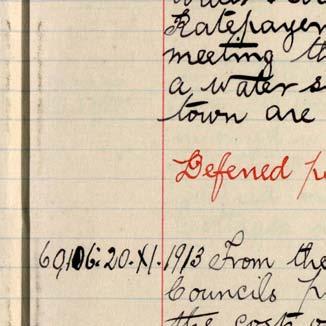 Ratepayer
meeting th
a water s
town are
Defened p
60106:20.XI.1913 From the
Councils p
the cost o